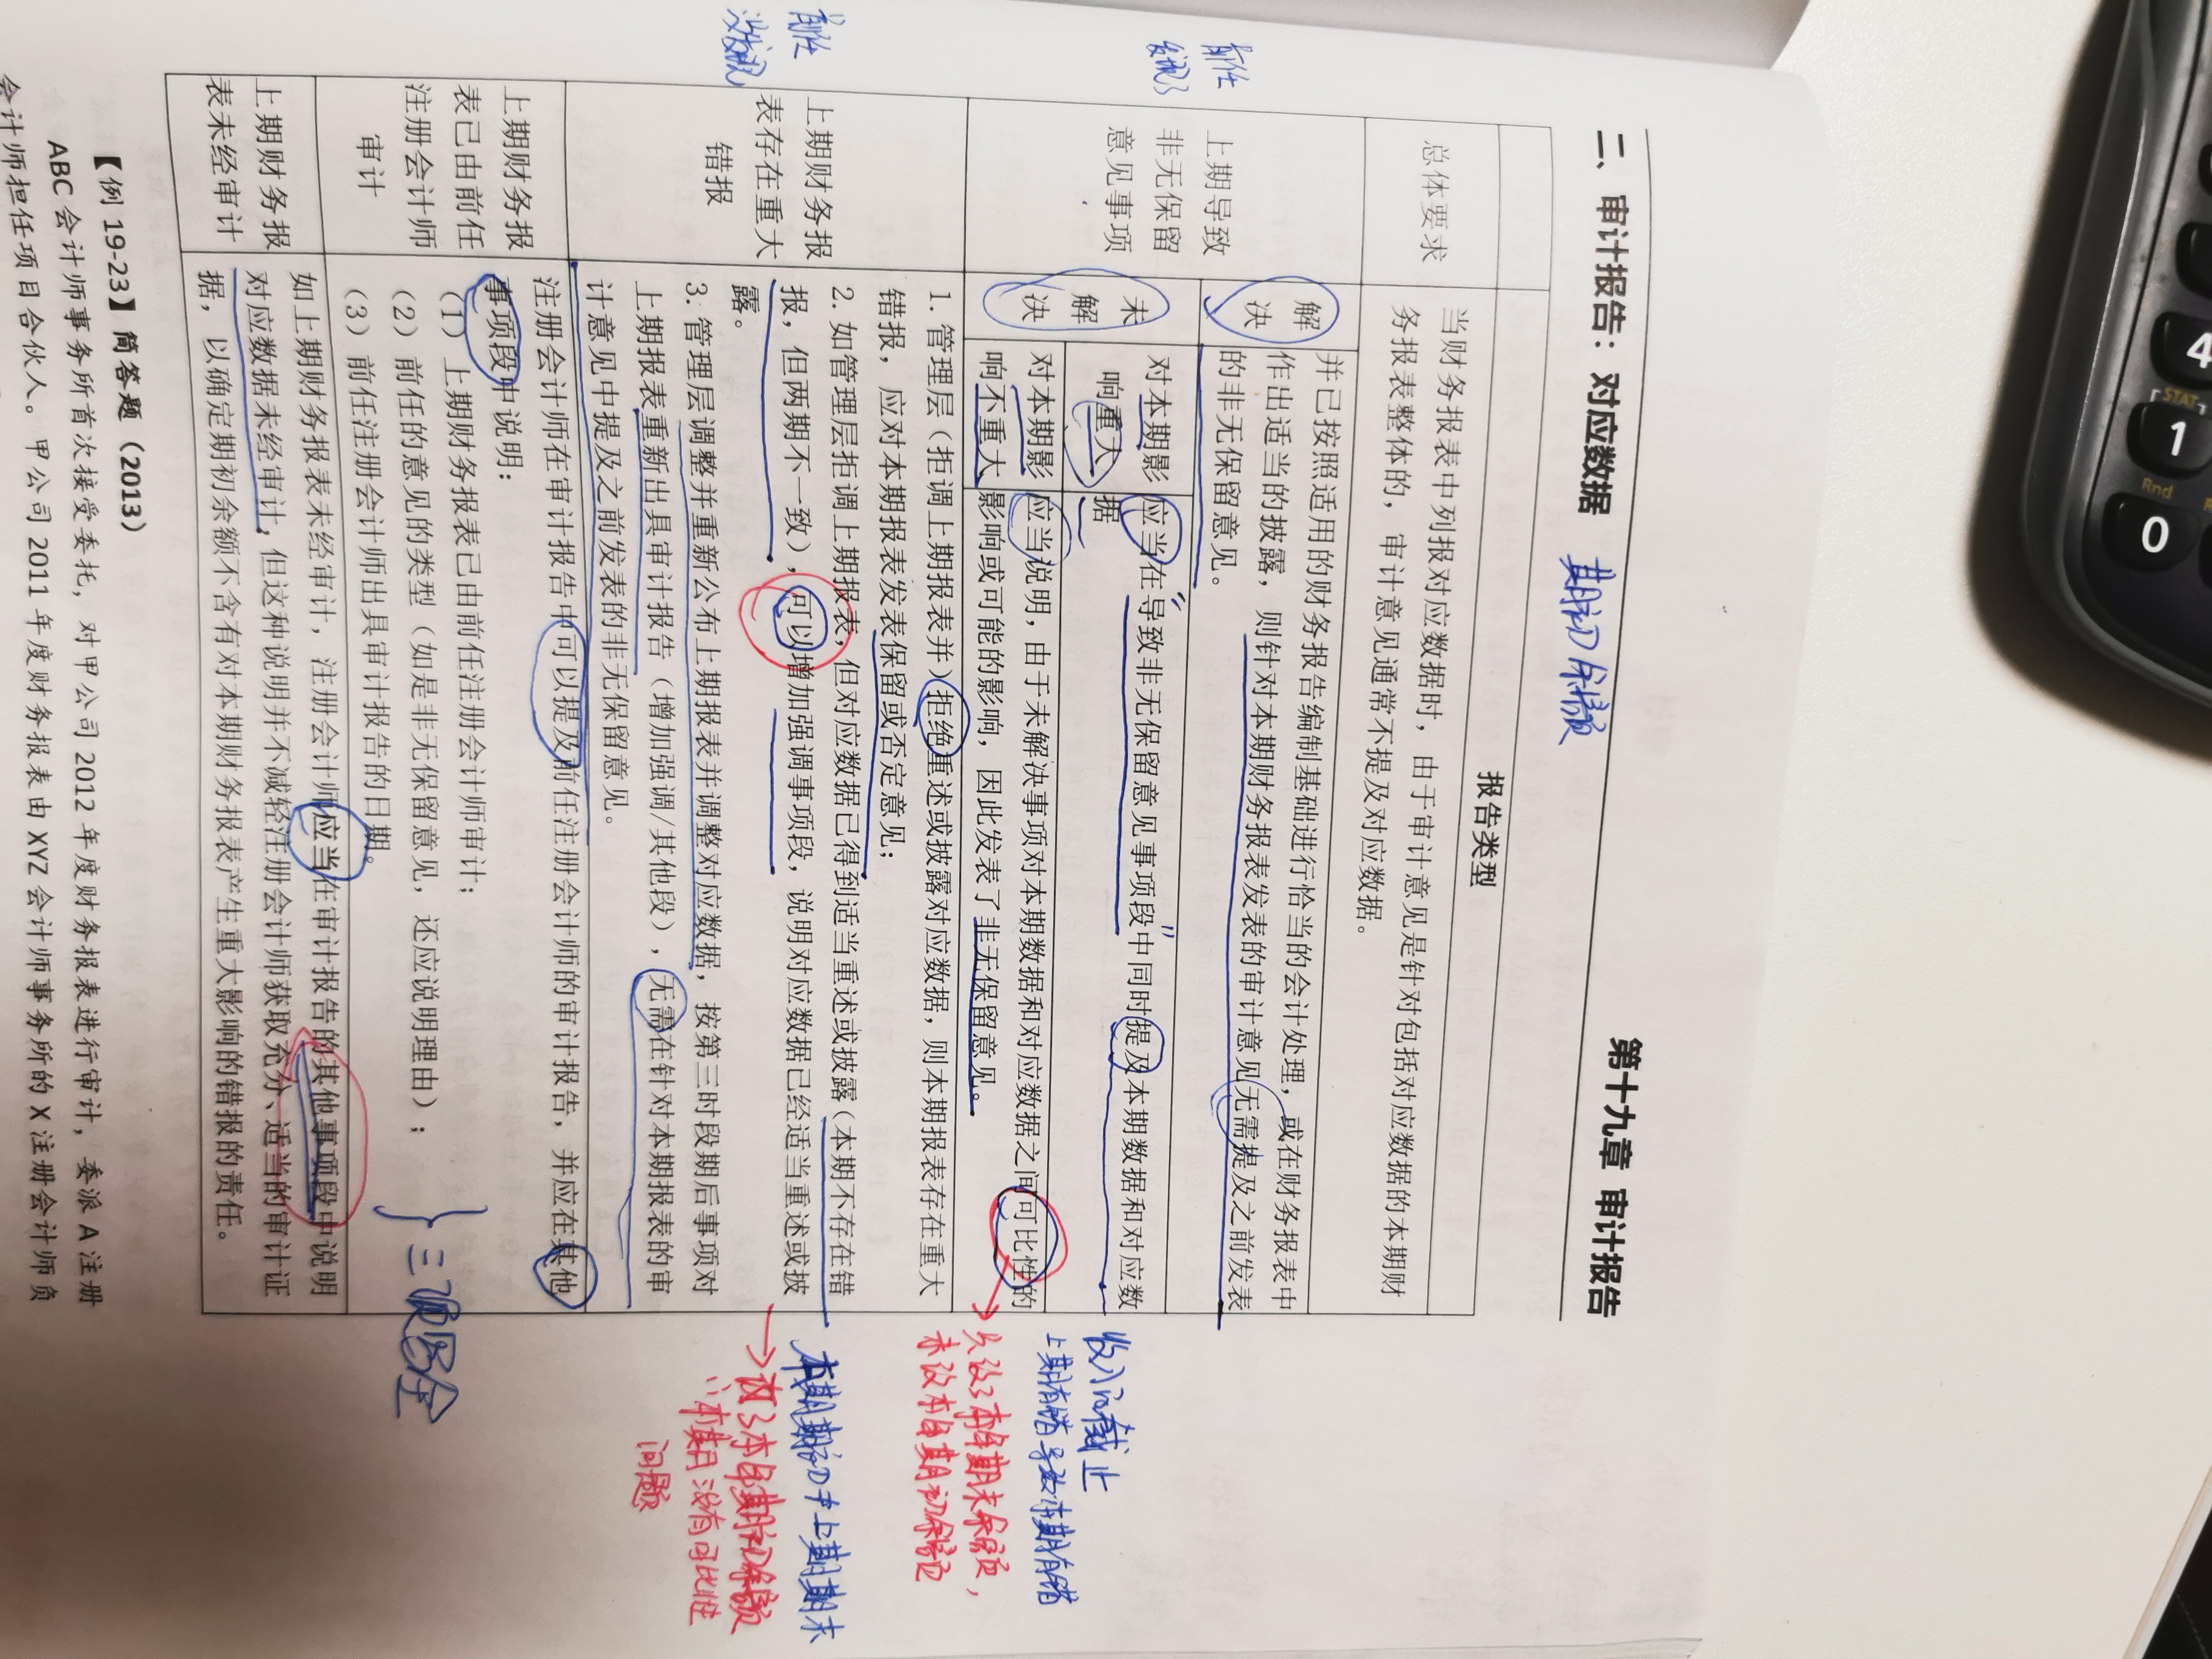 第十九章 审计报告
二、审计报告：对应数据 期初余额
报告类型
总体要求
当财务报表中列报对应数据时，由于审计意见是针对包括对应数据的本期财
务报表整体的，审计意见通常不提及对应数据。
前任
发现了
上期导致
非无保留
意见事项
解
决
并已按照适用的财务报告编制基础进行恰当的会计处理，或在财务报表中
作出适当的披露，则针对本期财务报表发表的审计意见无需提及之前发表
的非无保留意见。
未
解
决
对本期影
响重大
应当在“导致非无保留意见事项段”中同时提及本期数据和对应数
据
对本期影
响不重大
应当说明，由于未解决事项对本期数据和对应数据之间可比性的
影响或可能的影响，因此发表了非无保留意见。
收入截止
上期有错导致本期有错
只改了本年期末余额，
未改本年期初余额
前任
没发现
上期财务报
表存在重大
错报
1. 管理层（拒调上期报表并）拒绝重述或披露对应数据，则本期报表存在重大
错报，应对本期报表发表保留或否定意见；
2. 如管理层拒调上期报表，但对应数据已得到适当重述或披露（本期不存在错
报，但两期不一致），可以增加强调事项段，说明对应数据已经适当重述或披
露。
3. 管理层调整并重新公布上期报表并调整对应数据，按第三时段期后事项对
上期报表重新出具审计报告（增加强调/其他段），无需在针对本期报表的审
计意见中提及之前发表的非无保留意见。
本期期初≠上期期末
改了本年期初余额
∵本期没有可比性
问题
上期财务报
表已由前任
注册会计师
审计
注册会计师在审计报告中可以提及前任注册会计师的审计报告，并应在其他
事项段中说明：
（1）上期财务报表已由前任注册会计师审计；
（2）前任的意见的类型（如是非无保留意见，还应说明理由）；
（3）前任注册会计师出具审计报告的日期。
三项图全
上期财务报
表未经审计
如上期财务报表未经审计，注册会计师应当在审计报告的其他事项段中说明
对应数据未经审计，但这种说明并不减轻注册会计师获取充分、适当的审计证
据，以确定期初余额不含有对本期财务报表产生重大影响的错报的责任。
【例 19-23】简答题（2013）
ABC 会计师事务所首次接受委托，对甲公司 2012 年度财务报表进行审计，委派 A 注册
会计师担任项目合伙人。甲公司 2011 年度财务报表由 XYZ 会计师事务所的 X 注册会计师负
4
STAT
1
Rnd
0